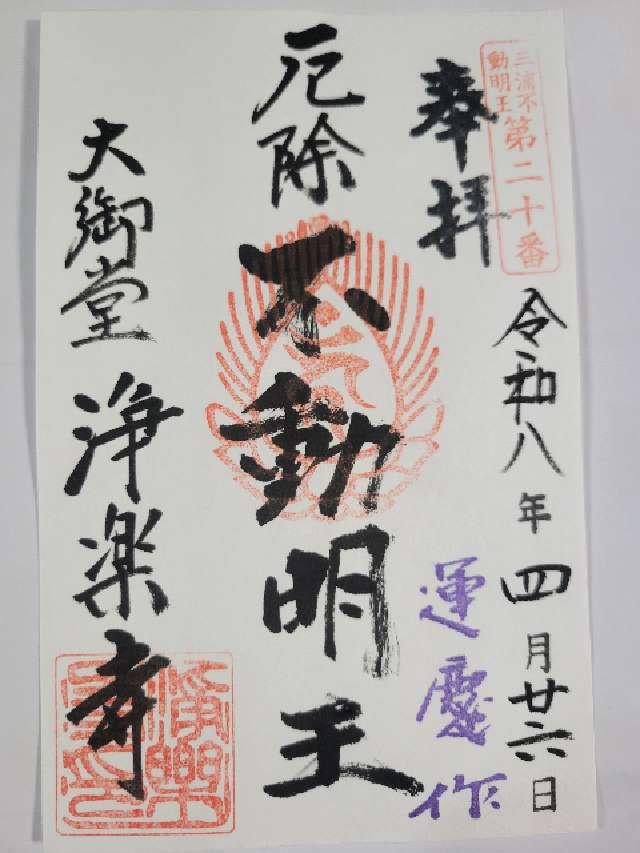 三浦不
動明王
第二十番
奉拝
令和八年四月廿六日
運慶作
厄除
不動明王
大御堂
浄楽寺